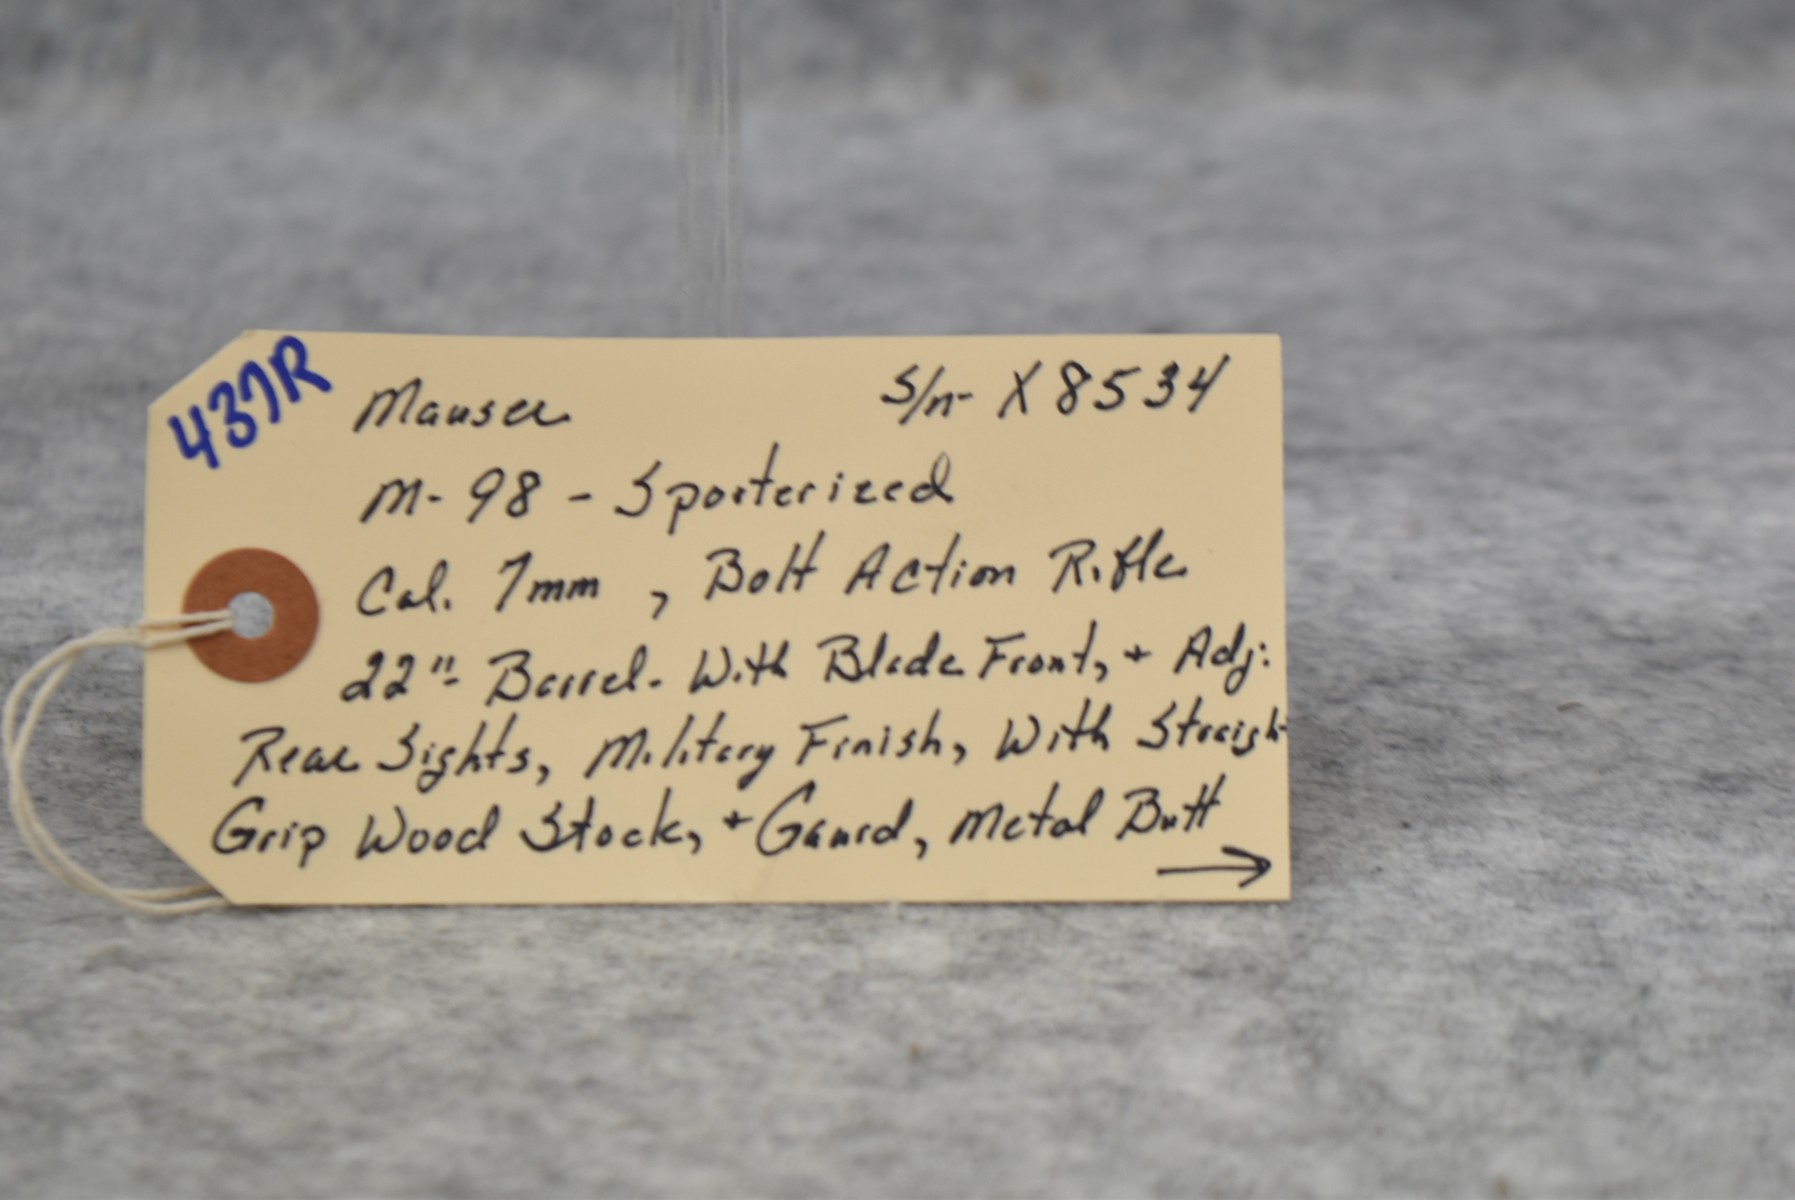 437R
Mauser S/n- X8534
M-98 - Sporterized
Cal. 7mm, Bolt Action Rifle
22"- Barrel- With Blade Front, + Adj:
Rear Sights, Military Finish, With Straight
Grip Wood Stock, + Gaurd, Metal Butt
→